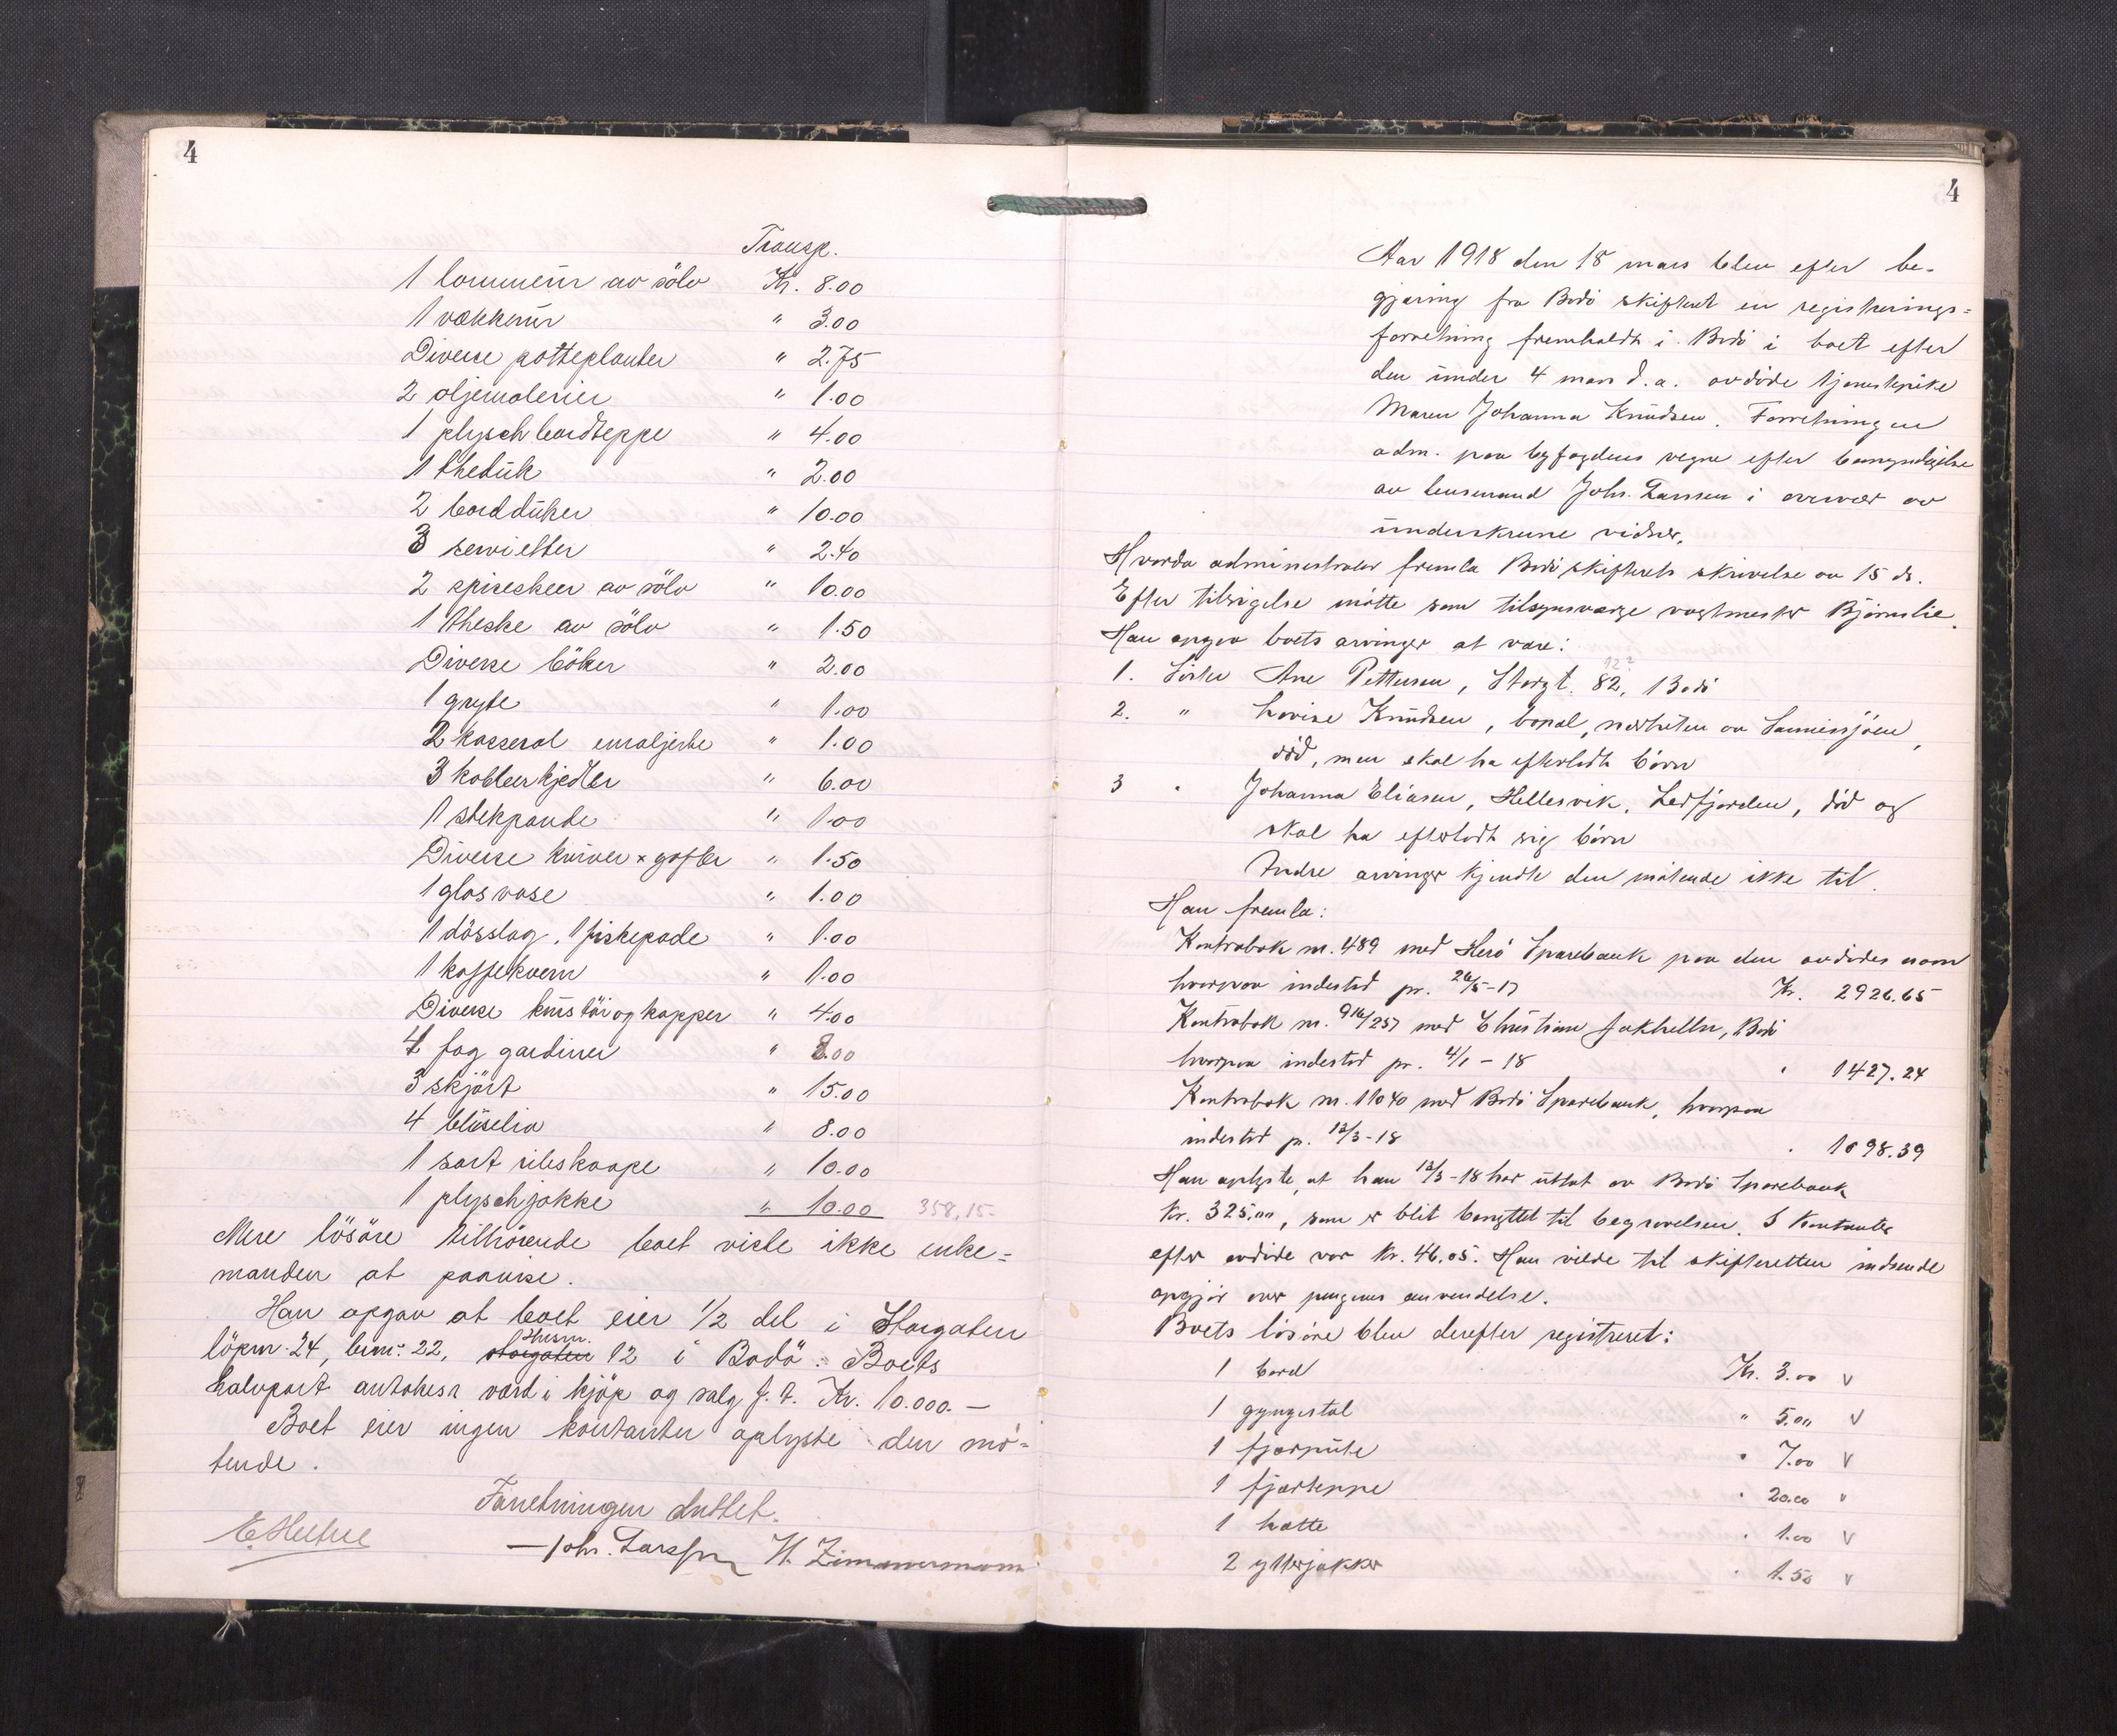 4
Transp.
1 lommeur av sölv Kr. 8.00
1 vækkeur " 3.00
Diverse potteplanter " 2.75
2 oljemalerier " 1.00
1 plysch bordteppe " 4.00
1 theduk " 2.00
2 bordduker " 10.00
3 servietter " 2.40
2 spiseskeer av sölv " 10.00
1 theske av sölv " 1.50
Diverse böker " 2.00
1 gryte " 1.00
2 kasserol emaljerte " 1.00
3 kobberkjedler " 6.00
1 stekpande " 1.00
Diverse kniver & gafler " 1.50
1 glasvase " 1.00
1 dörslag, 1 fiskespade " 1.00
1 kaffekvern " 1.00
Diverse knustöi og kopper " 4.00
4 fag gardiner " 8.00
3 skjört " 15.00
4 bluseliv " 8.00
1 sort silkeskaape " 10.00
1 plyschjakke " 10.00 358,15-
Mere lösöre tilhörende boet viste ikke enke=
manden at paavise.
Han opgav at boet eier 1/2 del i Storgaten
löpenr. 24, brnr. 22, storgaten Thesen. 12 i Bodö. Boets
halvpart antokes a værd i kjöp og salg f. t. Kr. 10.000.-
Boet eier ingen kontanter oplyste den mö=
tende.
Forretningen sluttet.
Johs. Larssen H. Zimmermann
4
Aar 1918 den 18 mars blev efter be-
gjæring fra Bodö skifteret en registrerings=
forretning fremholdt i Bodö i boet efter
den under 4 mars d. a. avdöde tjenestepike
Maren Johanna Knudsen. Forretningen
adm. paa byfogdens vegne efter bemyndigelse
av lensmand Johs. Larssen i overvær av
underskrevne vidner.
Hvorda administrator fremla Bodö skifterets skrivelse av 15 ds.
Efter tilsigelse mötte som tilsynsverge vagtmester Bjørnslie.
Han opgav boets arvinger at være:
1. Söster Ane Pettersen, Storgt. 82, Bodö
12?
2. " Lovise Knudsen, bopæl, nærheten av Sannessjöen,
död, men skal ha efterladt börn
3 " Johanna Eliasen, Hellesvik, Leirfjorden, död og
skal ha efterladt sig börn
Andre arvinger kjendte den mötende ikke til.
Han fremla:
Kontrabok nr. 489 med Herö Sparebank paa den avdödes navn
hvorpaa indestod pr. 26/5-17 Kr. 2926.65
Kontrabok nr. 916/257 med Christian Jakhelln, Bodö
hvorpaa indestod pr. 4/1-18 " 1427.24
Kontrabok nr. 11040 med Bodö Sparebank, hvorpaa
indestod pr. 12/3-18 " 1098.39
Han oplyste, at han 12/3-18 har uttat av Bodö Sparebank
kr. 325,00, som er blit benyttet til begravelsen. I kontanter
efter avdöde var kr. 46.05. Han vilde til skifteretten indsende
opgjör over pengenes anvendelse.
Boets lösöre blev derefter registreret:
1 bord Kr. 3.00 v
1 gyngestol " 5.00 v
1 fjærpute " 7.00 v
1 fjærteppe " 20.00 v
1 hætte " 1.00 v
2 ytterjakker " 1.50 v